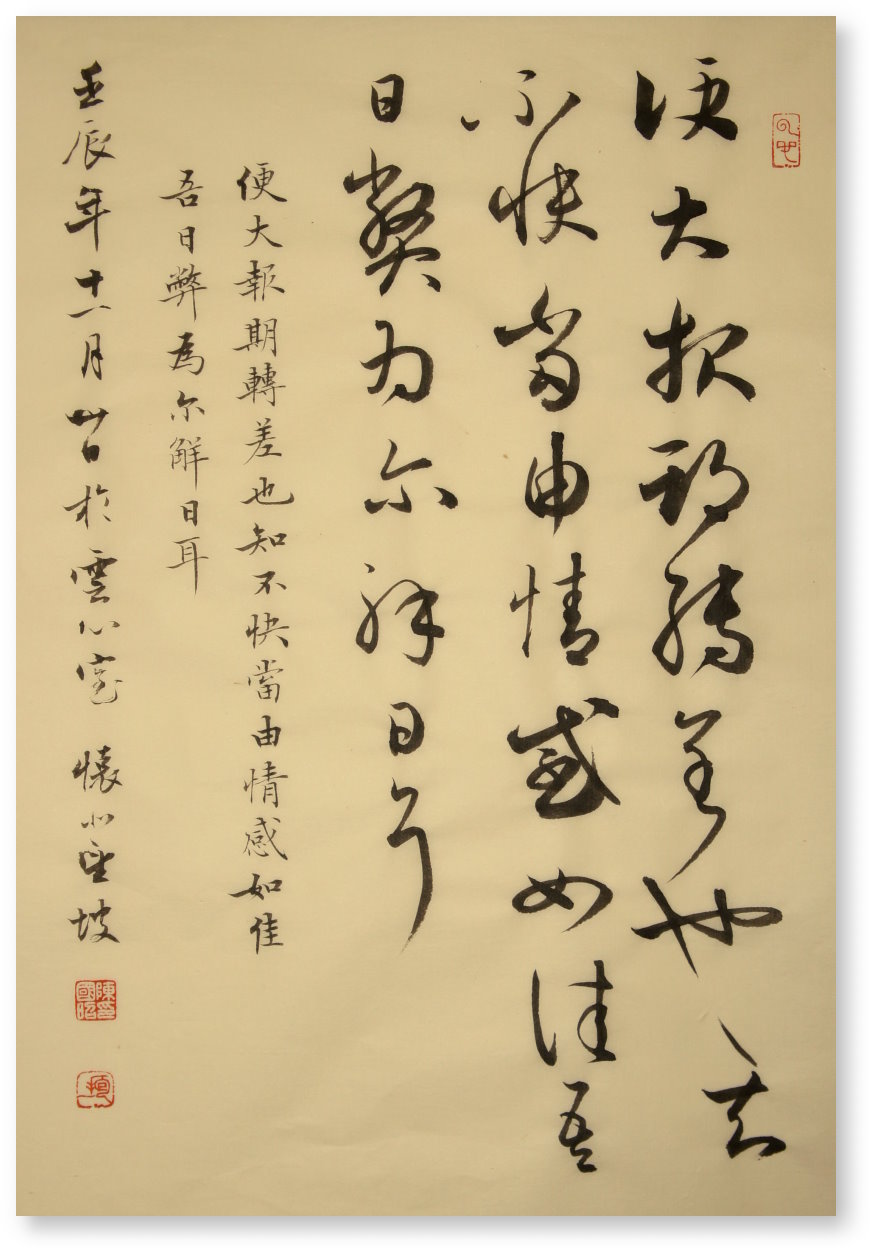 便大報期轉差也知
不快當由情感如佳吾
日弊为尔解日耳
便大報期轉差也知不快當由情感如佳
吾日弊為尔解日耳
壬辰年十一月廿日於雲心室 懷小坡
陳國昭印